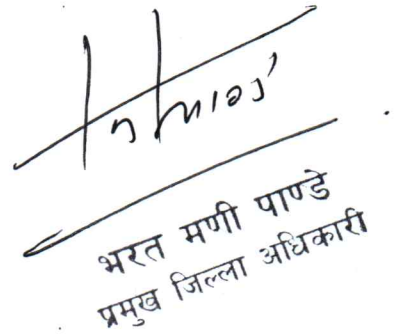 भरत मणी पाण्डे
प्रमुख जिल्ला अधिकारी